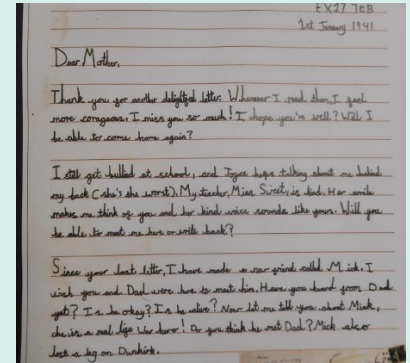 EX27 7EB
1st January 1941
Dear Mother,
Thank you for another delightful letter. Whenever I read them, I feel
more courageous. I miss you so much! I hope you're well? Will I
be able to come home again?
I still get bullied at school, and Joyce keeps talking about me behind
my back (she's the worst). My teacher, Miss Sweet, is kind. Her smile
makes me think of you and her kind voice sounds like yours. Will you
be able to meet me here or write back?
Since your last letter, I have made a new friend called Mick. I
wish you and Dad were here to meet him. Have you heard from Dad
yet? Is he okay? Is he alive? Now let me tell you about Mick,
he is a real life War hero! Do you think he met Dad? Mick also
lost a leg on Dunkirk.